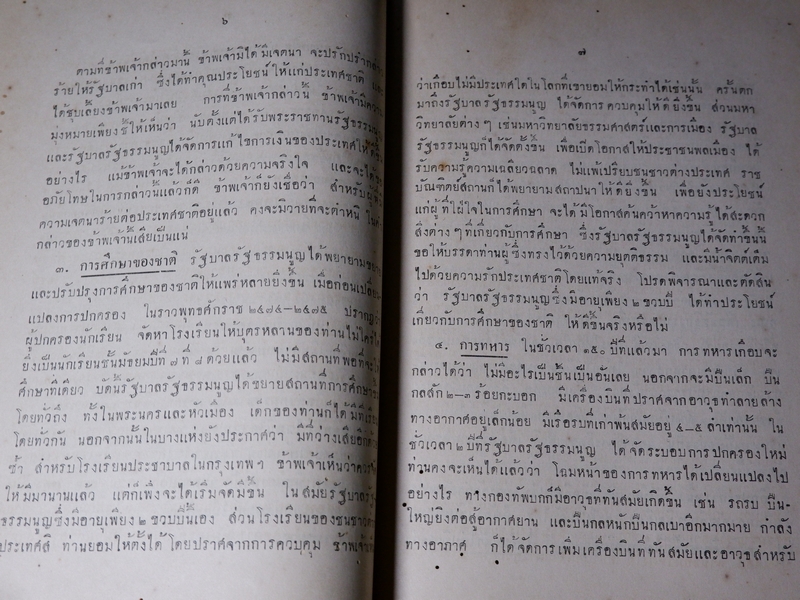 ๖
ตามที่ข้าพเจ้ากล่าวมานี้ ข้าพเจ้ามิได้มีเจตนา จะปรักปรำกล่าว
ร้ายให้รัฐบาลเก่า ซึ่งได้ทำคุณประโยชน์ให้แก่ประเทศชาติ
ได้ชุบเลี้ยงข้าพเจ้ามาเลย การที่ข้าพเจ้ากล่าวนั้น ข้าพเจ้ามีความ
มุ่งหมายเพียงชี้ให้เห็นว่า นับตั้งแต่ได้รับพระราชทานรัฐธรรมนูญ
และรัฐบาลรัฐธรรมนูญได้จัดการแก้ไขการเงินของประเทศให้ดีขึ้น
อย่างไร แม้ข้าพเจ้าจะได้กล่าวด้วยความจริงใจ และจะได้
อภัยโทษในการกล่าวนี้แล้วก็ดี ข้าพเจ้าก็ยังเชื่อว่า สำหรับผู้ที่
ความเจตนาร้ายต่อประเทศชาติอยู่แล้ว คงจะมิวายที่จะตำหนิ ในคำ
กล่าวของข้าพเจ้านี้เสียเป็นแน่
๓. การศึกษาของชาติ รัฐบาลรัฐธรรมนูญได้พยายามขยาย
และปรับปรุงการศึกษาของชาติให้แพร่หลายยิ่งขึ้น เมื่อก่อนเปลี่ยน
แปลงการปกครอง ในราวพุทธศักราช ๒๔๗๔-๒๔๗๕ ปรากฏว่า
ผู้ปกครองนักเรียน จัดหาโรงเรียนให้บุตรหลานของท่านไม่ใคร่ได้
ยิ่งเป็นนักเรียนชั้นมัธยมปีที่ ๗ ที่ ๘ ด้วยแล้ว ไม่มีสถานที่พอที่จะให้
ศึกษาทีเดียว บัดนี้รัฐบาลรัฐธรรมนูญได้ขยายสถานที่การศึกษา
โดยทั่วถึง ทั้งในพระนครและหัวเมือง เด็กของท่านก็ได้มีที่เรียน
โดยทั่วกัน นอกจากนั้นในบางแห่งยังประกาศว่า มีที่ว่างเสียอีก
ซ้ำ สำหรับโรงเรียนประชาบาลในกรุงเทพฯ ข้าพเจ้าเห็นว่าควร
ให้มีมานานแล้ว แต่ก็เพิ่งจะได้เริ่มจัดมีขึ้น ในสมัยรัฐบาลรัฐ
ธรรมนูญซึ่งมีอายุเพียง ๒ ขวบปีนี้เอง ส่วนโรงเรียนของชนชาวต่าง
ประเทศสิ ท่านยอมให้ตั้งได้โดยปราศจากการควบคุม ข้าพเจ้าเห็น
๗
ว่าเกือบไม่มีประเทศใดในโลกที่เขายอมให้กระทำได้เช่นนั้น ครั้นตก
มาถึงรัฐบาลรัฐธรรมนูญ ได้จัดการควบคุมให้ดียิ่งขึ้น ส่วนมหา
วิทยาลัยต่างๆ เช่นมหาวิทยาลัยธรรมศาสตร์และการเมือง รัฐบาล
รัฐธรรมนูญก็ได้จัดตั้งขึ้น เพื่อเปิดโอกาสให้ประชาชนพลเมือง ได้
รับความรู้ความเฉลียวฉลาด ไม่แพ้เปรียบชนชาวต่างประเทศ ราช
บัณฑิตย์สถานก็ได้พยายามสถาปนาให้ดียิ่งขึ้น เพื่อยังประโยชน์
แก่ผู้ที่ใฝ่ใจในการศึกษา จะได้มีโอกาสค้นคว้าหาความรู้ได้สะดวก
สิ่งต่างๆ ที่เกี่ยวกับการศึกษา ซึ่งรัฐบาลรัฐธรรมนูญได้จัดทำขึ้นนั้น
ขอให้บรรดาท่านผู้ซึ่งทรงไว้ด้วยความยุตติธรรม และมีน้ำจิตต์เต็ม
ไปด้วยความรักประเทศชาติโดยแท้จริง โปรดพิจารณาและตัดสิน
ว่า รัฐบาลรัฐธรรมนูญซึ่งมีอายุเพียง ๒ ขวบปี ได้ทำประโยชน์
เกี่ยวกับการศึกษาของชาติ ให้ดีขึ้นจริงหรือไม่
๔. การทหาร ในชั่วเวลา ๑๕๐ ปีที่แล้วมา การทหารเกือบจะ
กล่าวได้ว่า ไม่มีอะไรเป็นชิ้นเป็นอันเลย นอกจากจะมีปืนเล็ก ปืน
กลสัก ๒-๓ ร้อยกะบอก มีเครื่องบินที่ปราศจากอาวุธทำลายล้าง
ทางอากาศอยู่เล็กน้อย มีเรือรบที่เก่าพ้นสมัยอยู่ ๔-๕ ลำเท่านั้น ใน
ชั่วเวลา ๒ ปีที่รัฐบาลรัฐธรรมนูญ ได้จัดระบอบการปกครองใหม่
ท่านคงจะเห็นได้แล้วว่า โฉมหน้าของการทหารได้เปลี่ยนแปลงไป
อย่างไร ทางกองทัพบกก็มีอาวุธที่ทันสมัยเกิดขึ้น เช่น รถรบ ปืน-
ใหญ่ยิงต่อสู้อากาศยาน และปืนกลหนักปืนกลเบาอีกมากมาย กำลัง
ทางอากาศ ก็ได้จัดการเพิ่มเครื่องบินที่ทันสมัยและอาวุธสำหรับ